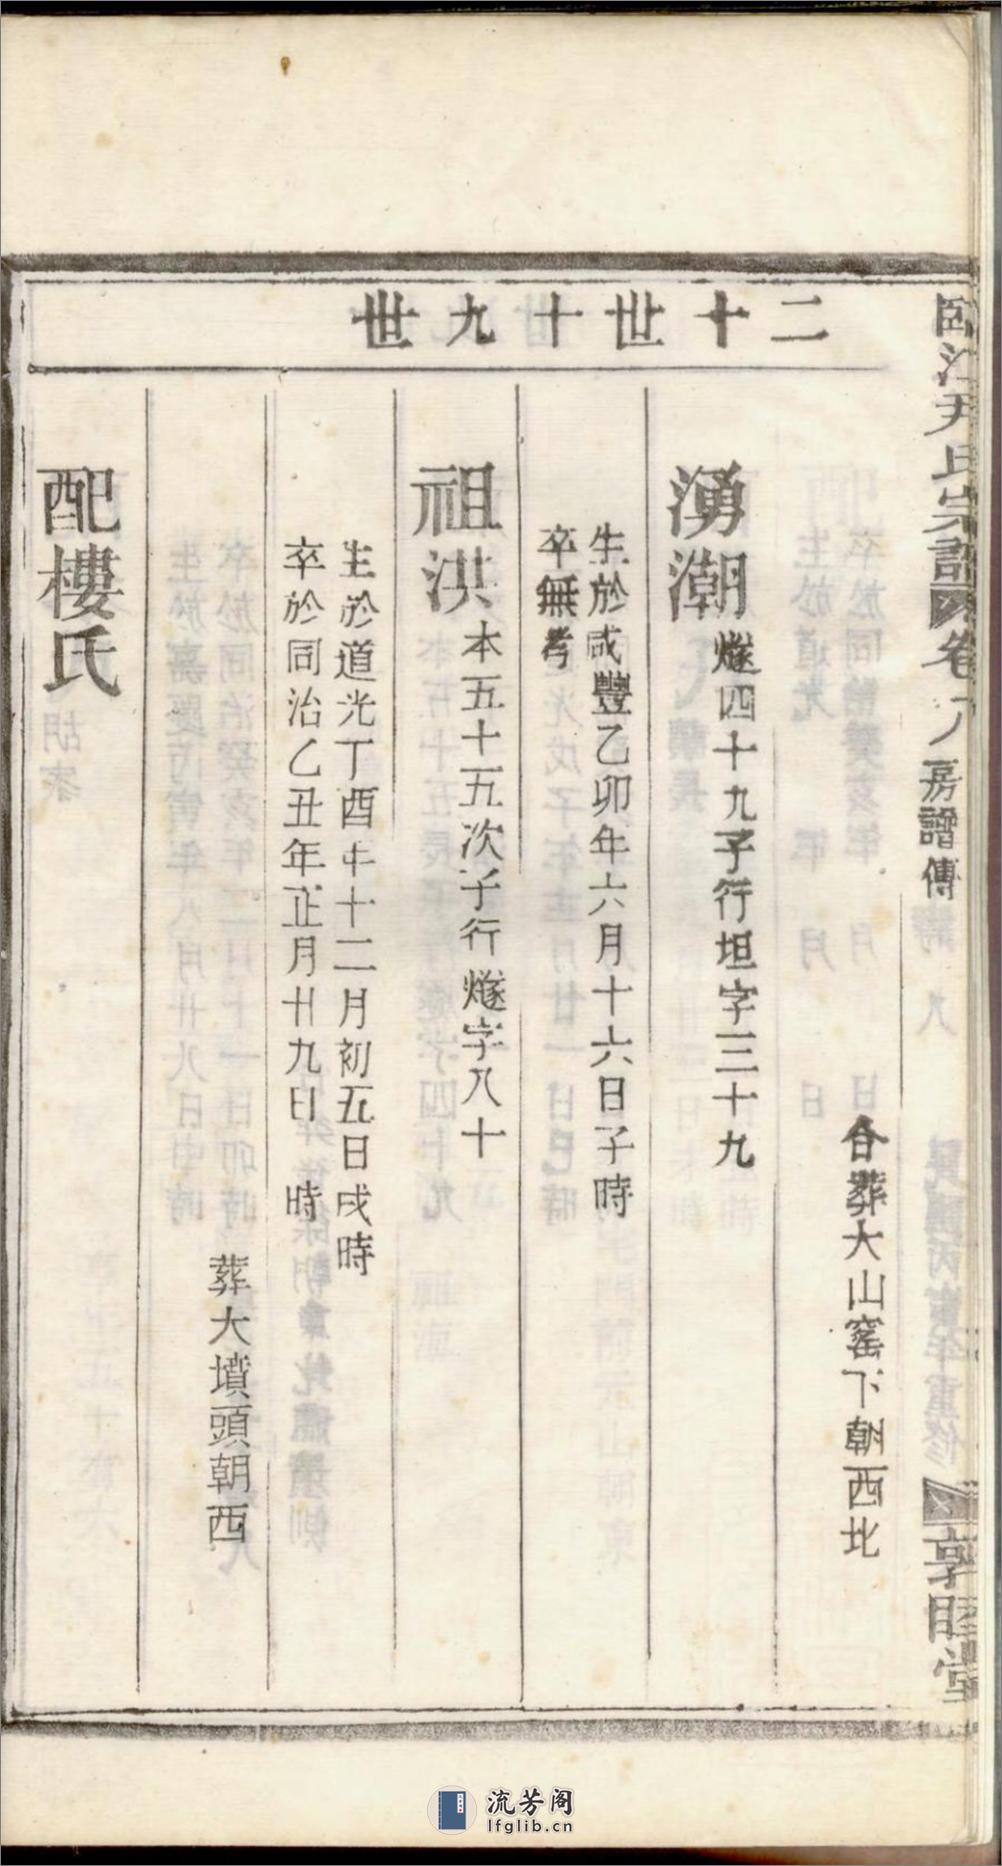 江尹氏宗譜 卷 房譜傳
敦睦堂
二十世十九世
合葬大山窰下朝西北
湧潮
燧四十九子行坦字三十九
生於咸豐乙卯年六月十六日子時
卒無考
祖洪
本五十五次子行燧字八十
生於道光丁酉年十二月初五日戌時
卒於同治乙丑年正月廿九日 時
葬大墳頭朝西
配樓氏
流芳阁
lfglib.cn